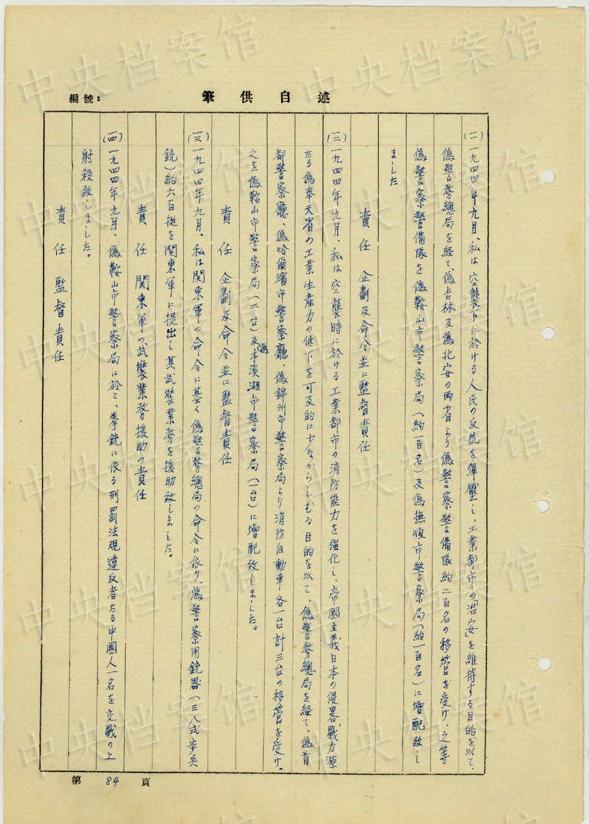 述自供筆
編號：
(二)一九四四年九月、私は空襲下に於ける人民の反抗を彈壓し、工業都市の「治安」を維持する目的を以て、
偽警務總局を経て、偽吉林及偽北安の両省より偽警察警備隊約二百名の移管を受け、之等
偽警察警備隊を偽鞍山市警察局(約一百名)及偽撫順市警察局(約一百名)に増配致し
ました
責任 企劃及命令並に監督責任
(三)一九四四年九月、私は空襲時に於ける工業都市の消防能力を強化し、帝國主義日本の侵畧戰力源
たる偽奉天省の工業生產力の低下を可及的に少なからしむる目的を以て、偽警務總局を経て、偽首
都警察廳、偽哈爾濱市警察廳、偽錦州市警察局より消防自動車各一台計三台の移管を受け、
之を偽鞍山市警察局(二台)及偽本溪湖市警察局(一台)に増配致しました。
責任 企劃及命令並に監督責任
(三)一九四四年九月、私は関東軍の命令に基く偽警務總局の命令に依り、偽警察用銃器(三八式歩兵
銃)約六百挺を関東軍に提出し其武裝業務を援助致しました。
責任 関東軍の武裝業務援助の責任
(四)一九四四年九月、偽鞍山市警察局に於て、拳銃に依る刑罰法規違反者たる中國人一名を交戰の上
射殺致しました。
責任 監督責任
第84頁
中央档案馆